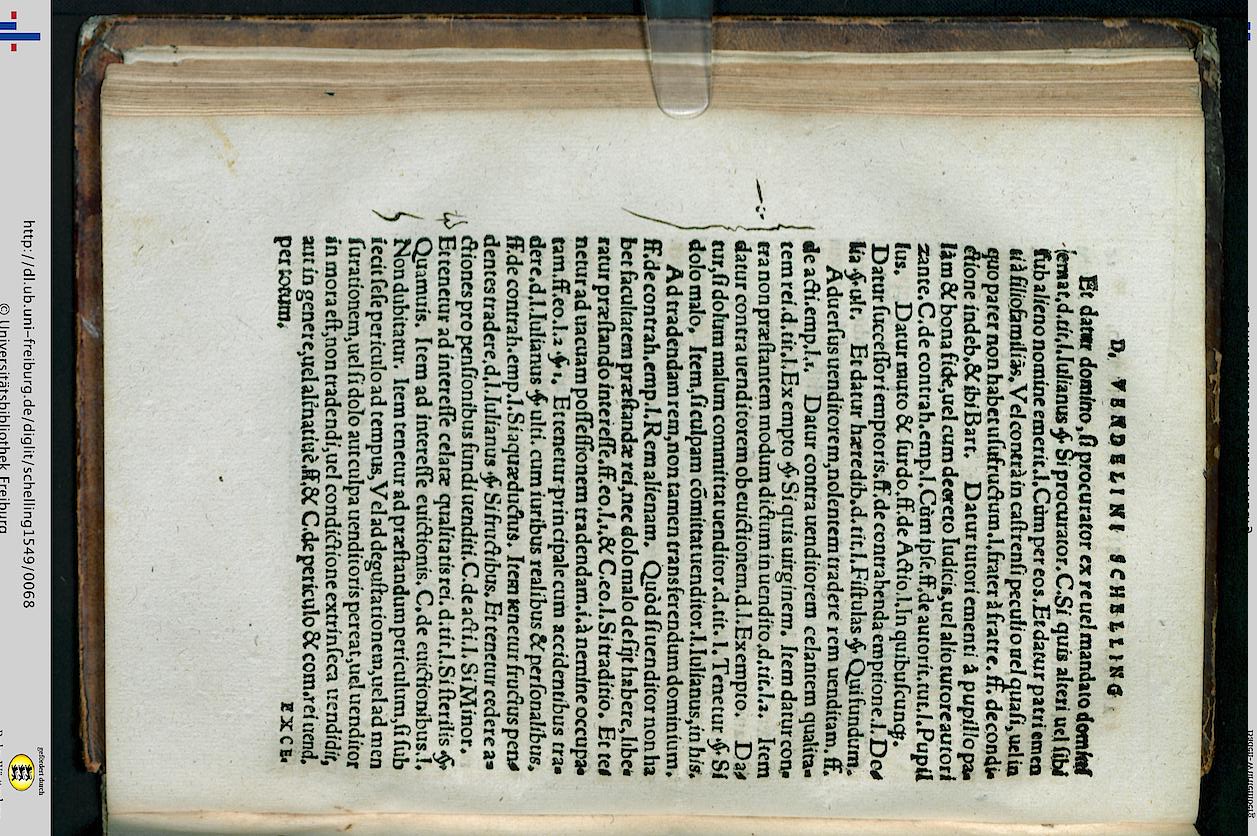 D. VENDELINI SCHELLING
Et datur domino, si procurator ex re uel mandato domini
emat, d. tit. l. Iulianus § Si procurator. C. Si quis alteri uel sibi
sub alieno nomine emerit. l. Cùm per eos. Et datur patri emen
ti à filiofamiliâs, Vel contrà in castrensi peculio uel quasi, uel in
quo pater non habet usufructum. l. frater à fratre. ff. de condi-
ctione indeb. & ibi Bart. Datur tutori ementi à pupillo pa-
làm & bona fide, uel cum decreto Iudicis, uel alio tutore autori
zante. C. de contrah. emp. l. Cùm ipse. ff. de autorit. tut. l. Pupil
lus. Datur muto & surdo. ff. de Actio. l. In quibuscunq;.
Datur successori emptoris. ff. de contrahenda emptione. l. Do-
lia § ult. Et datur hæredib. d. tit. l. Fistulas § Qui fundum.
Aduersus uenditorem, nolentem tradere rem uenditam. ff.
de acti. emp. l. 1. Datur contra uenditorem celantem qualita-
tem rei. d. tit. l. Ex empto § Si quis uirginem. Item datur con-
tra non præstantem modum dictum in uendito. d. tit. l. 2. Item
datur contra uenditorem ob euictionem. d. l. Ex empto. Da-
tur, si dolum malum committat uenditor. d. tit. l. Tenetur § Si
dolo malo. Item, si culpam cōmittat uenditor. l. Iulianus, in his.
Ad tradendam rem, non tamen transferendum dominium.
ff. de contrah. emp. l. Rem alienam. Quòd si uenditor non ha
bet facultatem præstandæ rei, nec dolo malo desijt habere, libe-
ratur præstando interesse. ff. eo. l. 1. & C. eo. l. Si traditio. Et te-
netur ad uacuam possessionem tradendam. i. à nemine occupa-
tam. ff. eo. l. 2 § 1. Et tenetur principale cum accidentibus tra-
dere. d. l. Iulianus § ulti. cum iuribus realibus & personalibus.
ff. de contrah. emp. l. Si aquæductus. Item tenetur fructus pen-
dentes tradere. d. l. Iulianus § Si fructibus. Et tenetur cedere a-
ctiones pro pensionibus fundi uenditi. C. de acti. l. Si Minor.
Et tenetur ad interesse celatæ qualitatis rei. d. tit. l. Si sterilis §
Quamuis. Item ad interesse euictionis. C. de euictionibus. l.
Non dubitatur. Item tenetur ad præstandum periculum, si sub
iecit sese periculo ad tempus, Vel ad degustationem, uel ad men
surationem, uel si dolo aut culpa uenditoris pereat, uel uenditor
in mora est, non tradendi, uel conditione extrinseca uendidit,
aut in genere, uel alternatiuè. ff. & C. de periculo & com. rei uend.
per totum.
EXCE-
http://dl.ub.uni-freiburg.de/diglit/schelling1549/0068
© Universitätsbibliothek Freiburg
gefördert durch